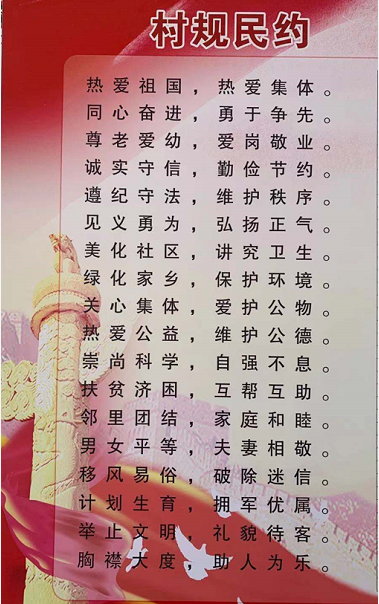 村规民约
热爱祖国，热爱集体。
同心奋进，勇于争先。
尊老爱幼，爱岗敬业。
诚实守信，勤俭节约。
遵纪守法，维护秩序。
见义勇为，弘扬正气。
美化社区，讲究卫生。
绿化家乡，保护环境。
关心集体，爱护公物。
热爱公益，维护公德。
崇尚科学，自强不息。
扶贫济困，互帮互助。
邻里团结，家庭和睦。
男女平等，夫妻相敬。
移风易俗，破除迷信。
计划生育，拥军优属。
举止文明，礼貌待客。
胸襟大度，助人为乐。